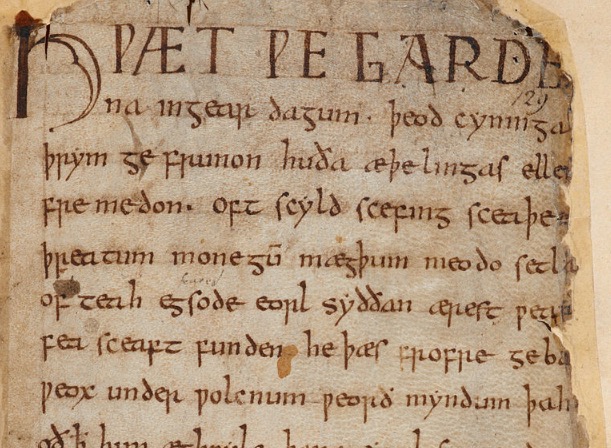 HǷÆT ǷE GARDE
129
na ingear dagum. þeod cyninga
þrym ge frunon huða æþelingas elle
fre medon. oft scyld scefing sceaþe
þreatum monegū mægþum meodo setla
of teah egsode eorl syððan ærest ƿear
fea sceaft funden he þæs frofre geba
ƿeox under ƿolcnum ƿeorð myndum þah
oð ꝥ him æghƿylc þara